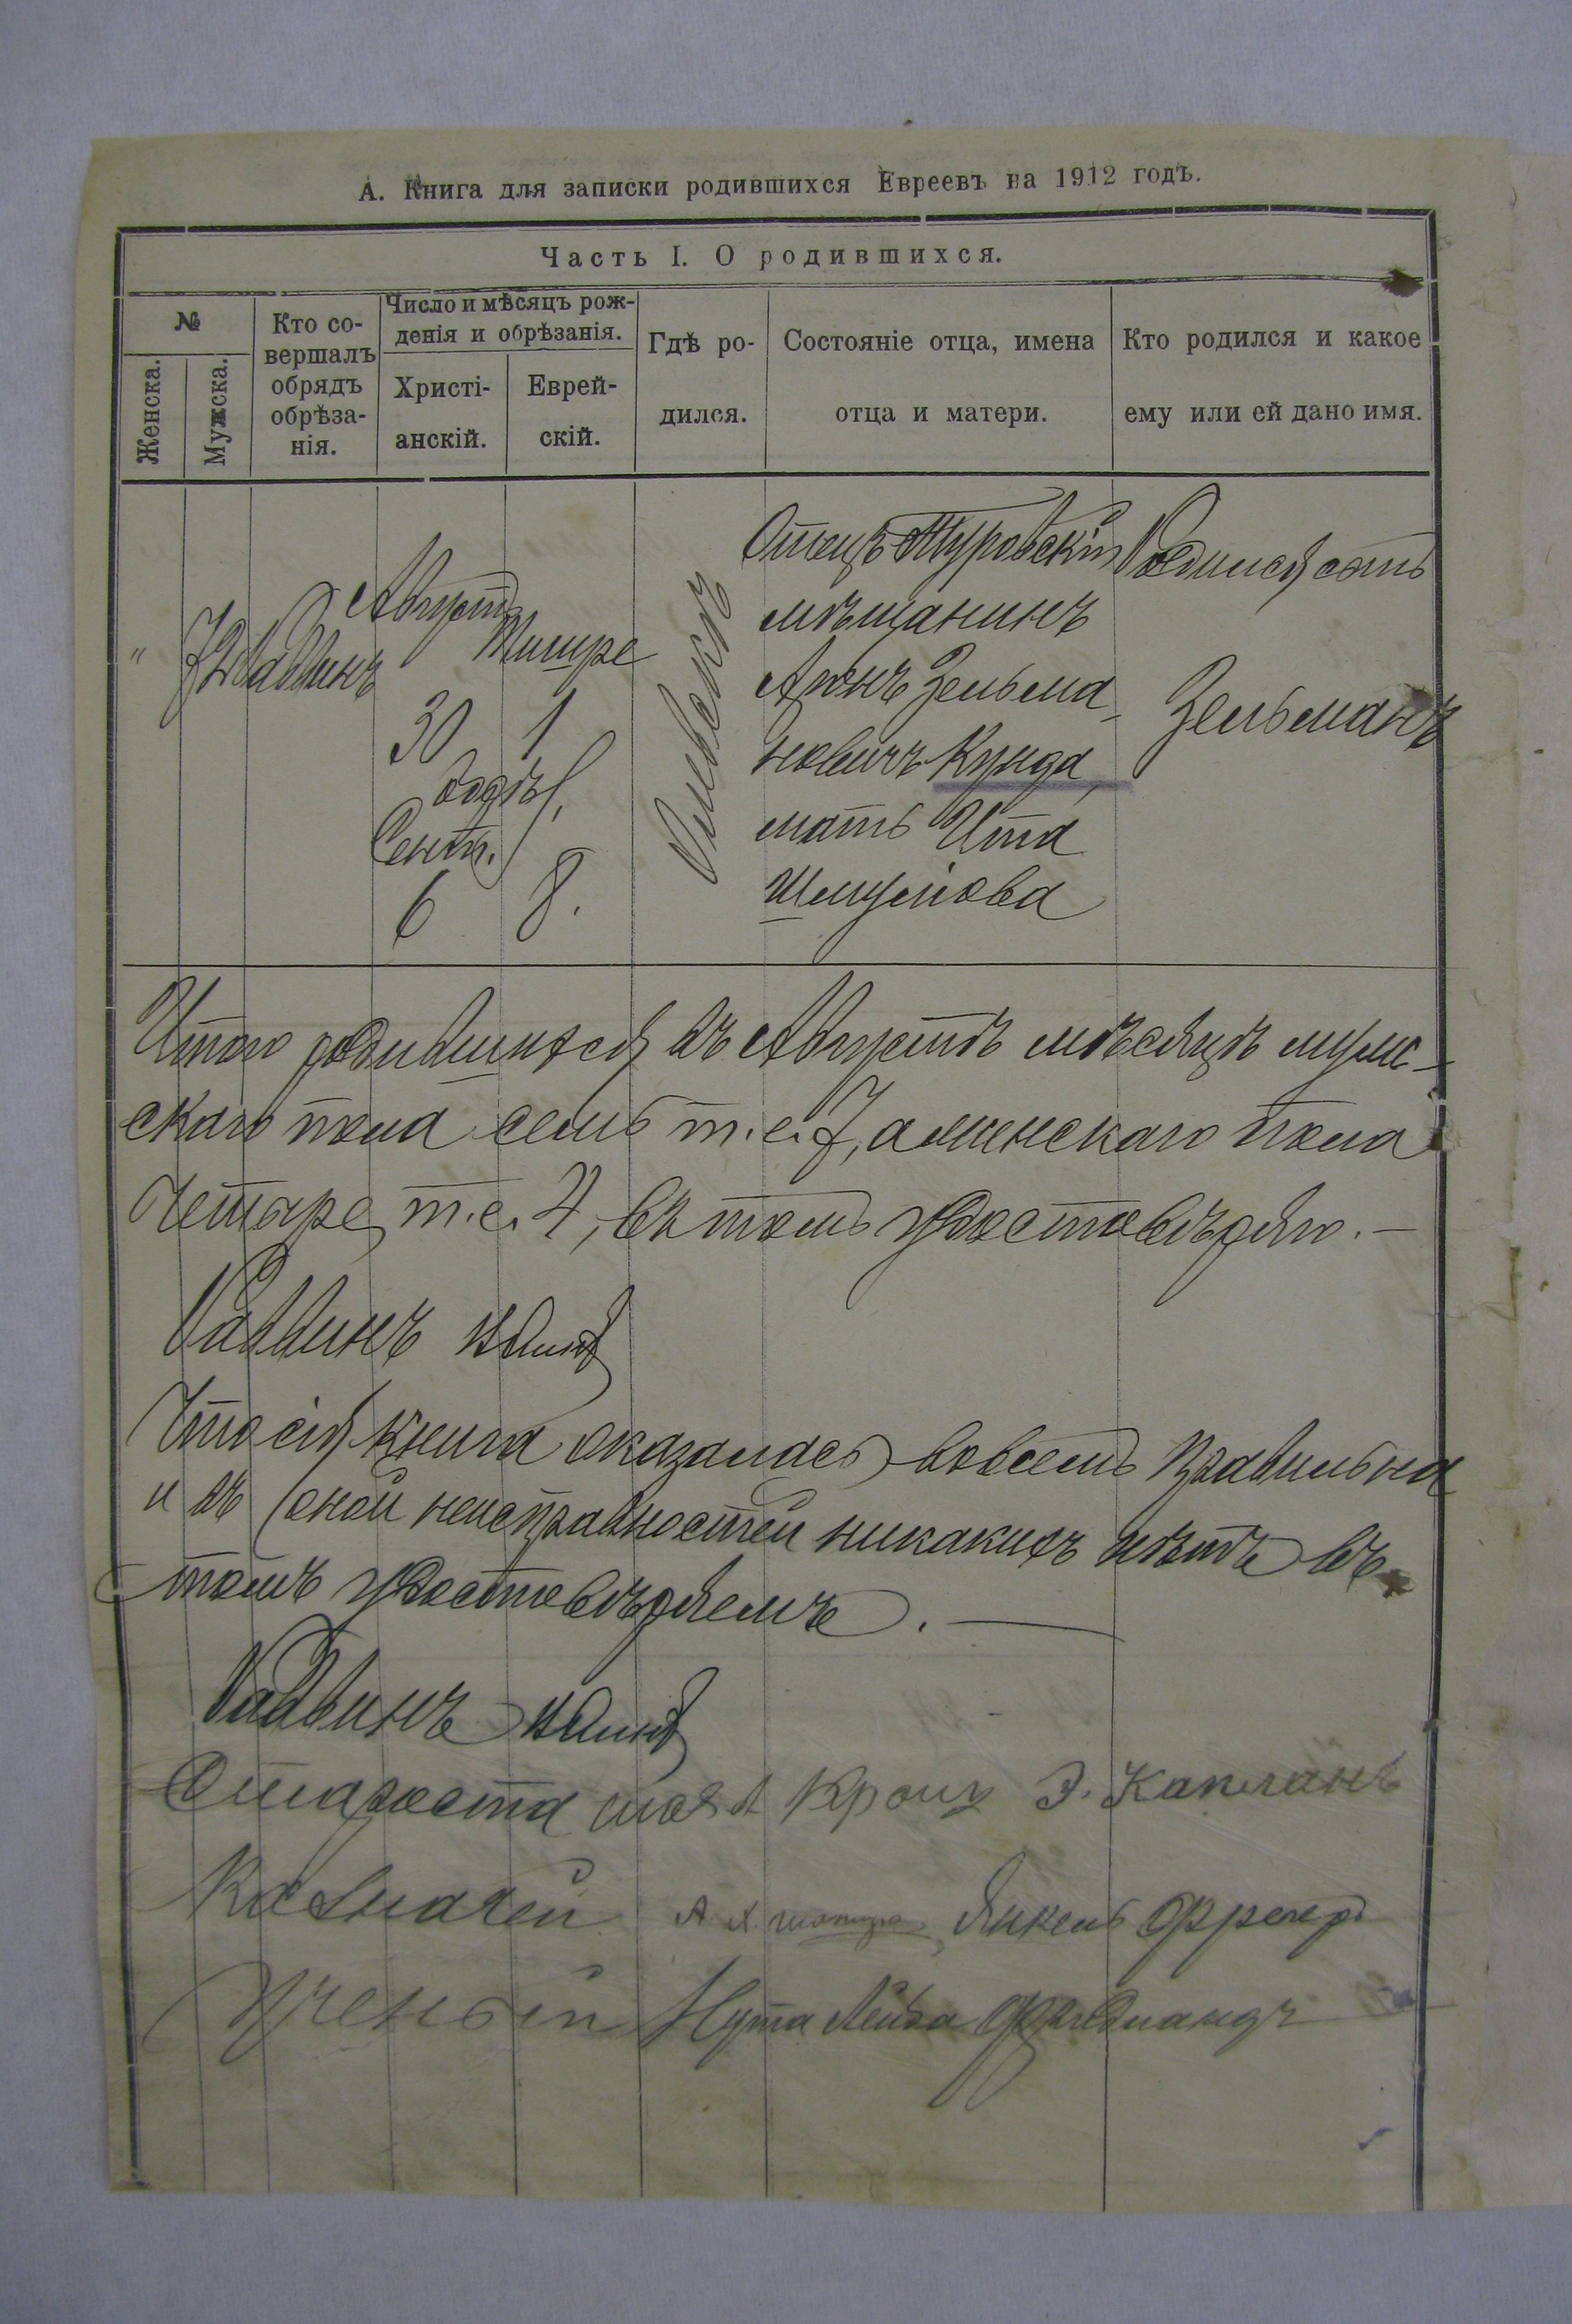 А. Книга для записки родившихся Евреевъ на 1912 годъ.
Часть I. О родившихся.
№
Женска.
Мужска.
Кто со-
вершалъ
обрядъ
обрѣза-
нія.
Число и мѣсяцъ рож-
денія и обрѣзанія.
Христі-
анскій.
Еврей-
скій.
Гдѣ ро-
дился.
Состояніе отца, имена
отца и матери.
Кто родился и какое
ему или ей дано имя.
"
7
Раввинъ
Августъ
30
Сент.
6
Тишре
1
8.
Олевскъ
Отецъ Туровскій
мѣщанинъ
Аронъ Зельма-
новичъ Кунда,
мать Ита
Шмулiова
Родился сынъ
Зельманъ
Итого родившихся въ Августѣ мѣсяцѣ муж-
скаго пола семь т.е. 7, а женскаго пола
Четыре т.е. 4, въ томъ удостовѣряю.—
Раввинъ
Что сія книга оказалась вовсемъ правильна
и въ оной неисправностей никакихъ нѣтъ въ
томъ удостовѣряемъ.—
Раввинъ
Староста Э. Капланъ
Казначей Янкель
Ученый Нута Лейба Фридландъ